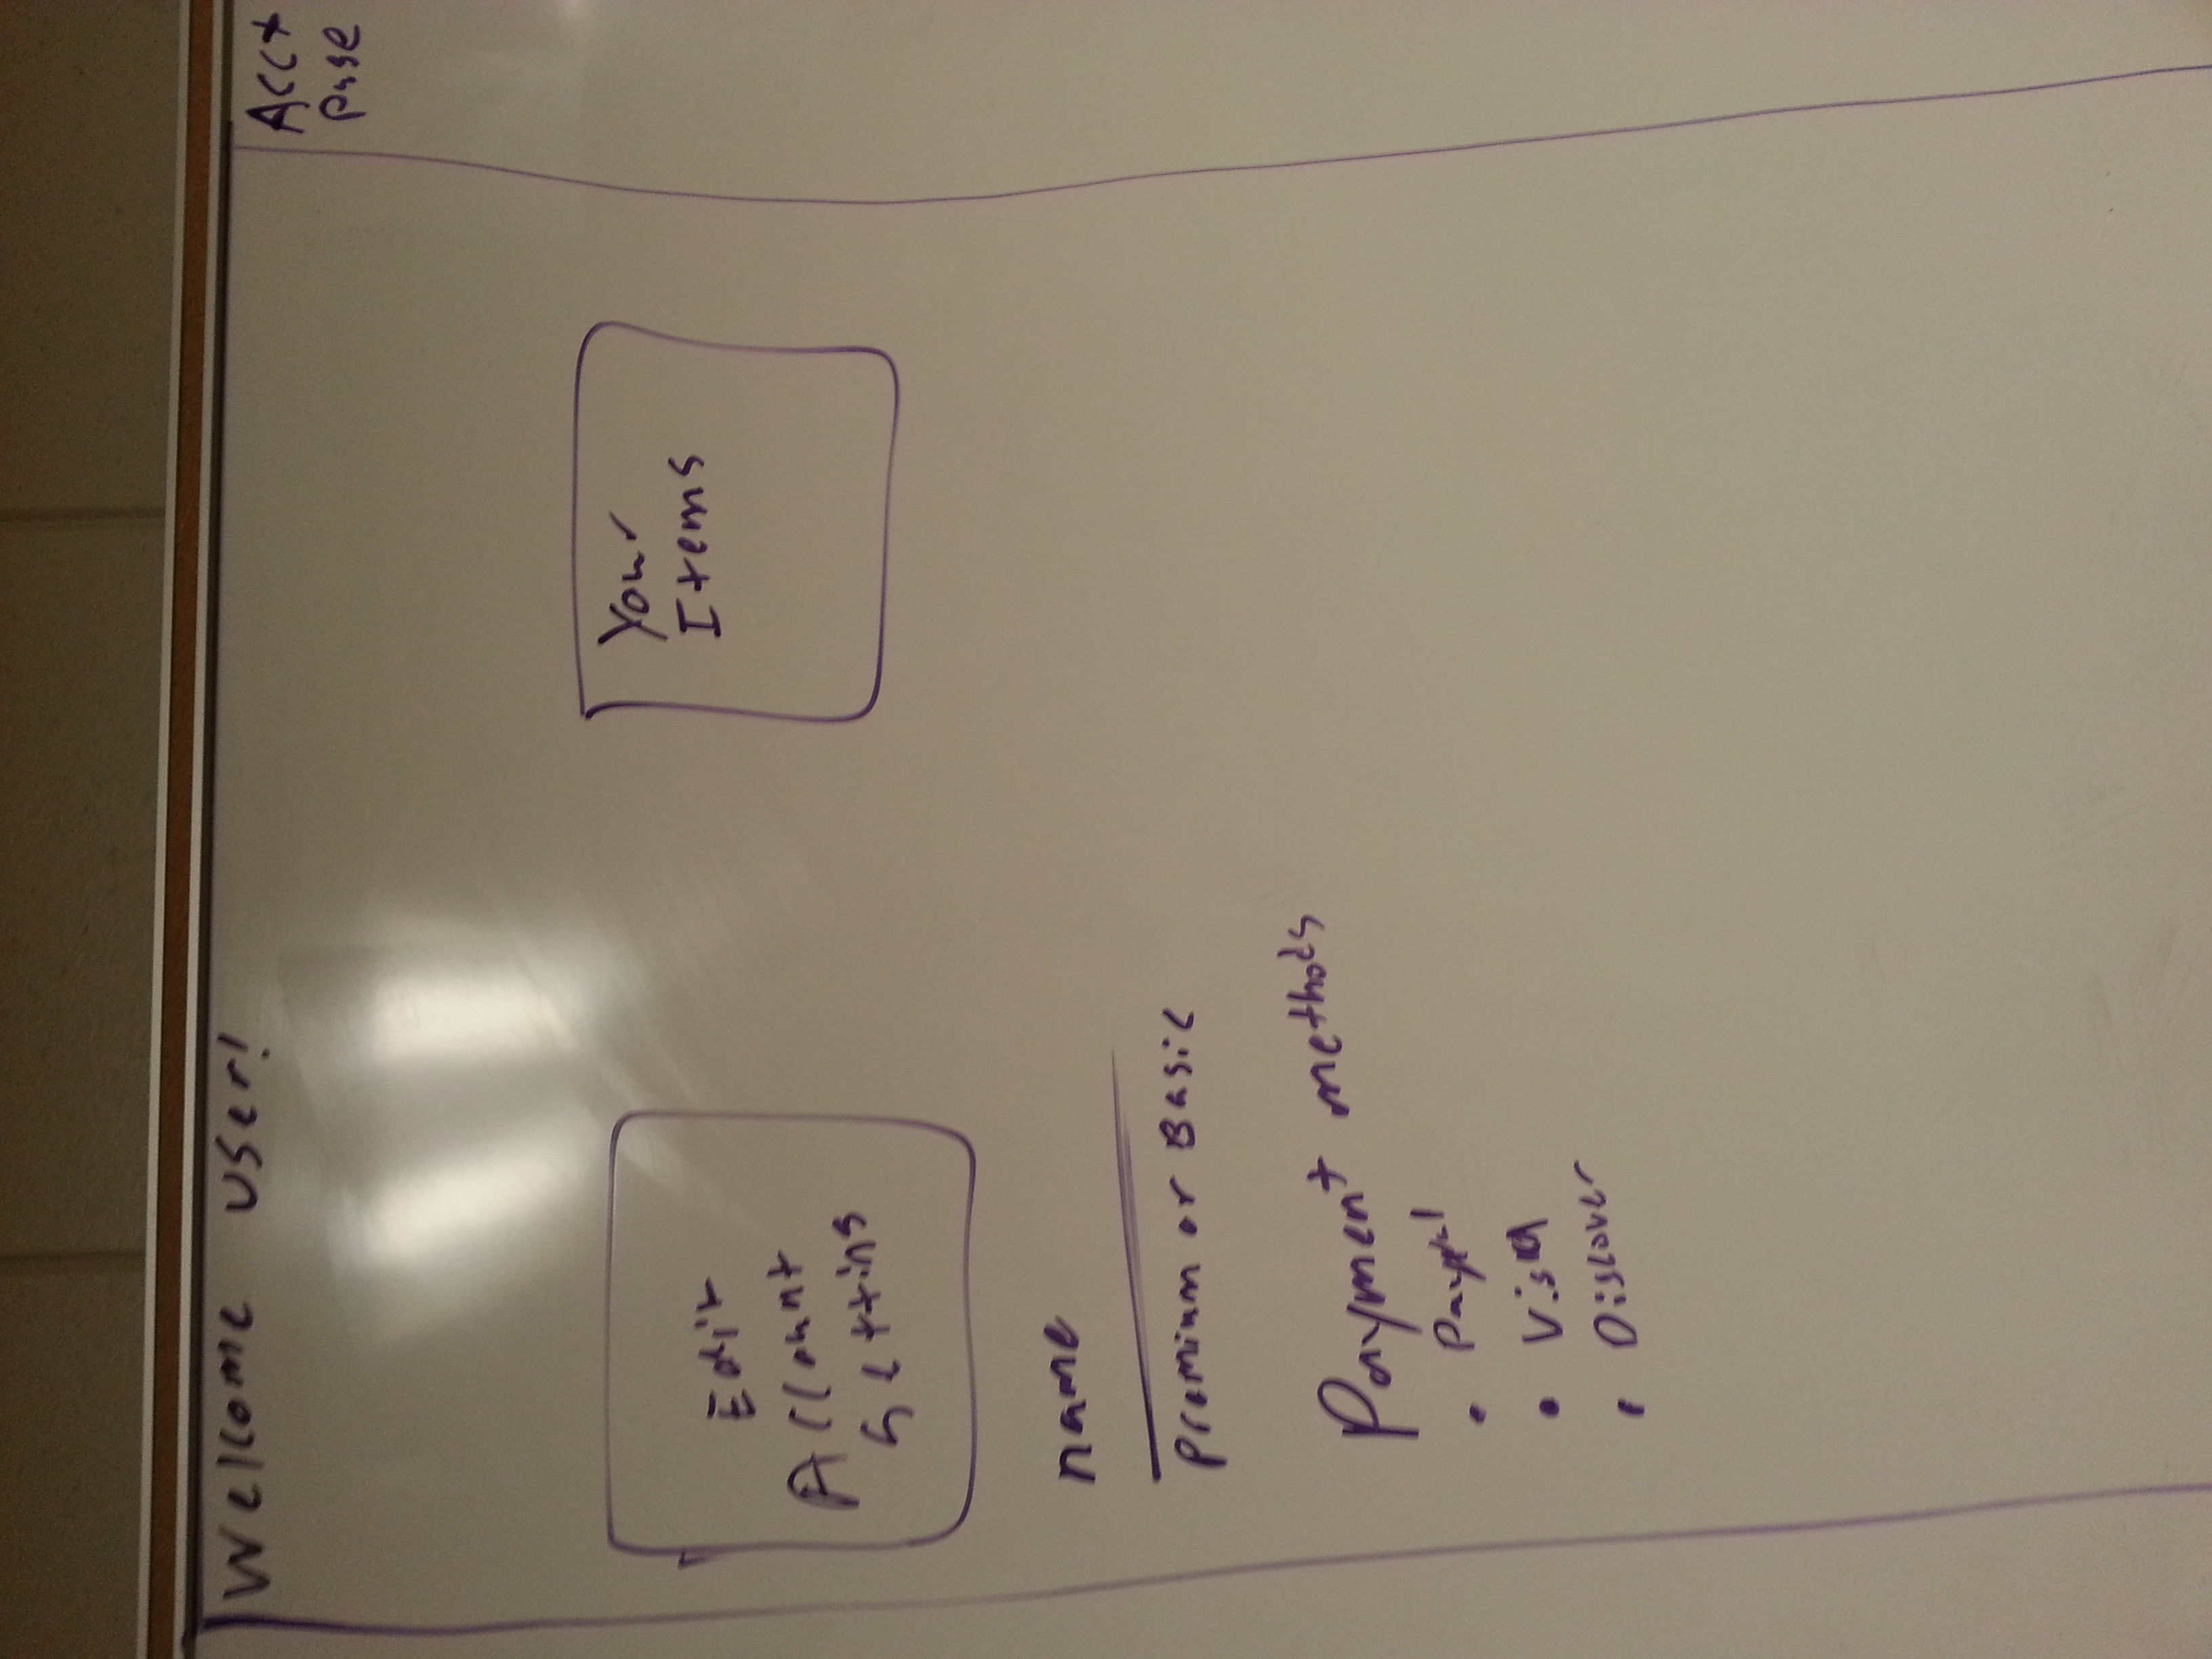 Welcome user!
Acct
Page
Edit
Account
Settins
Your
Items
name
Premium or Basic
Payment methods
• Paypal
• Visa
• Discover